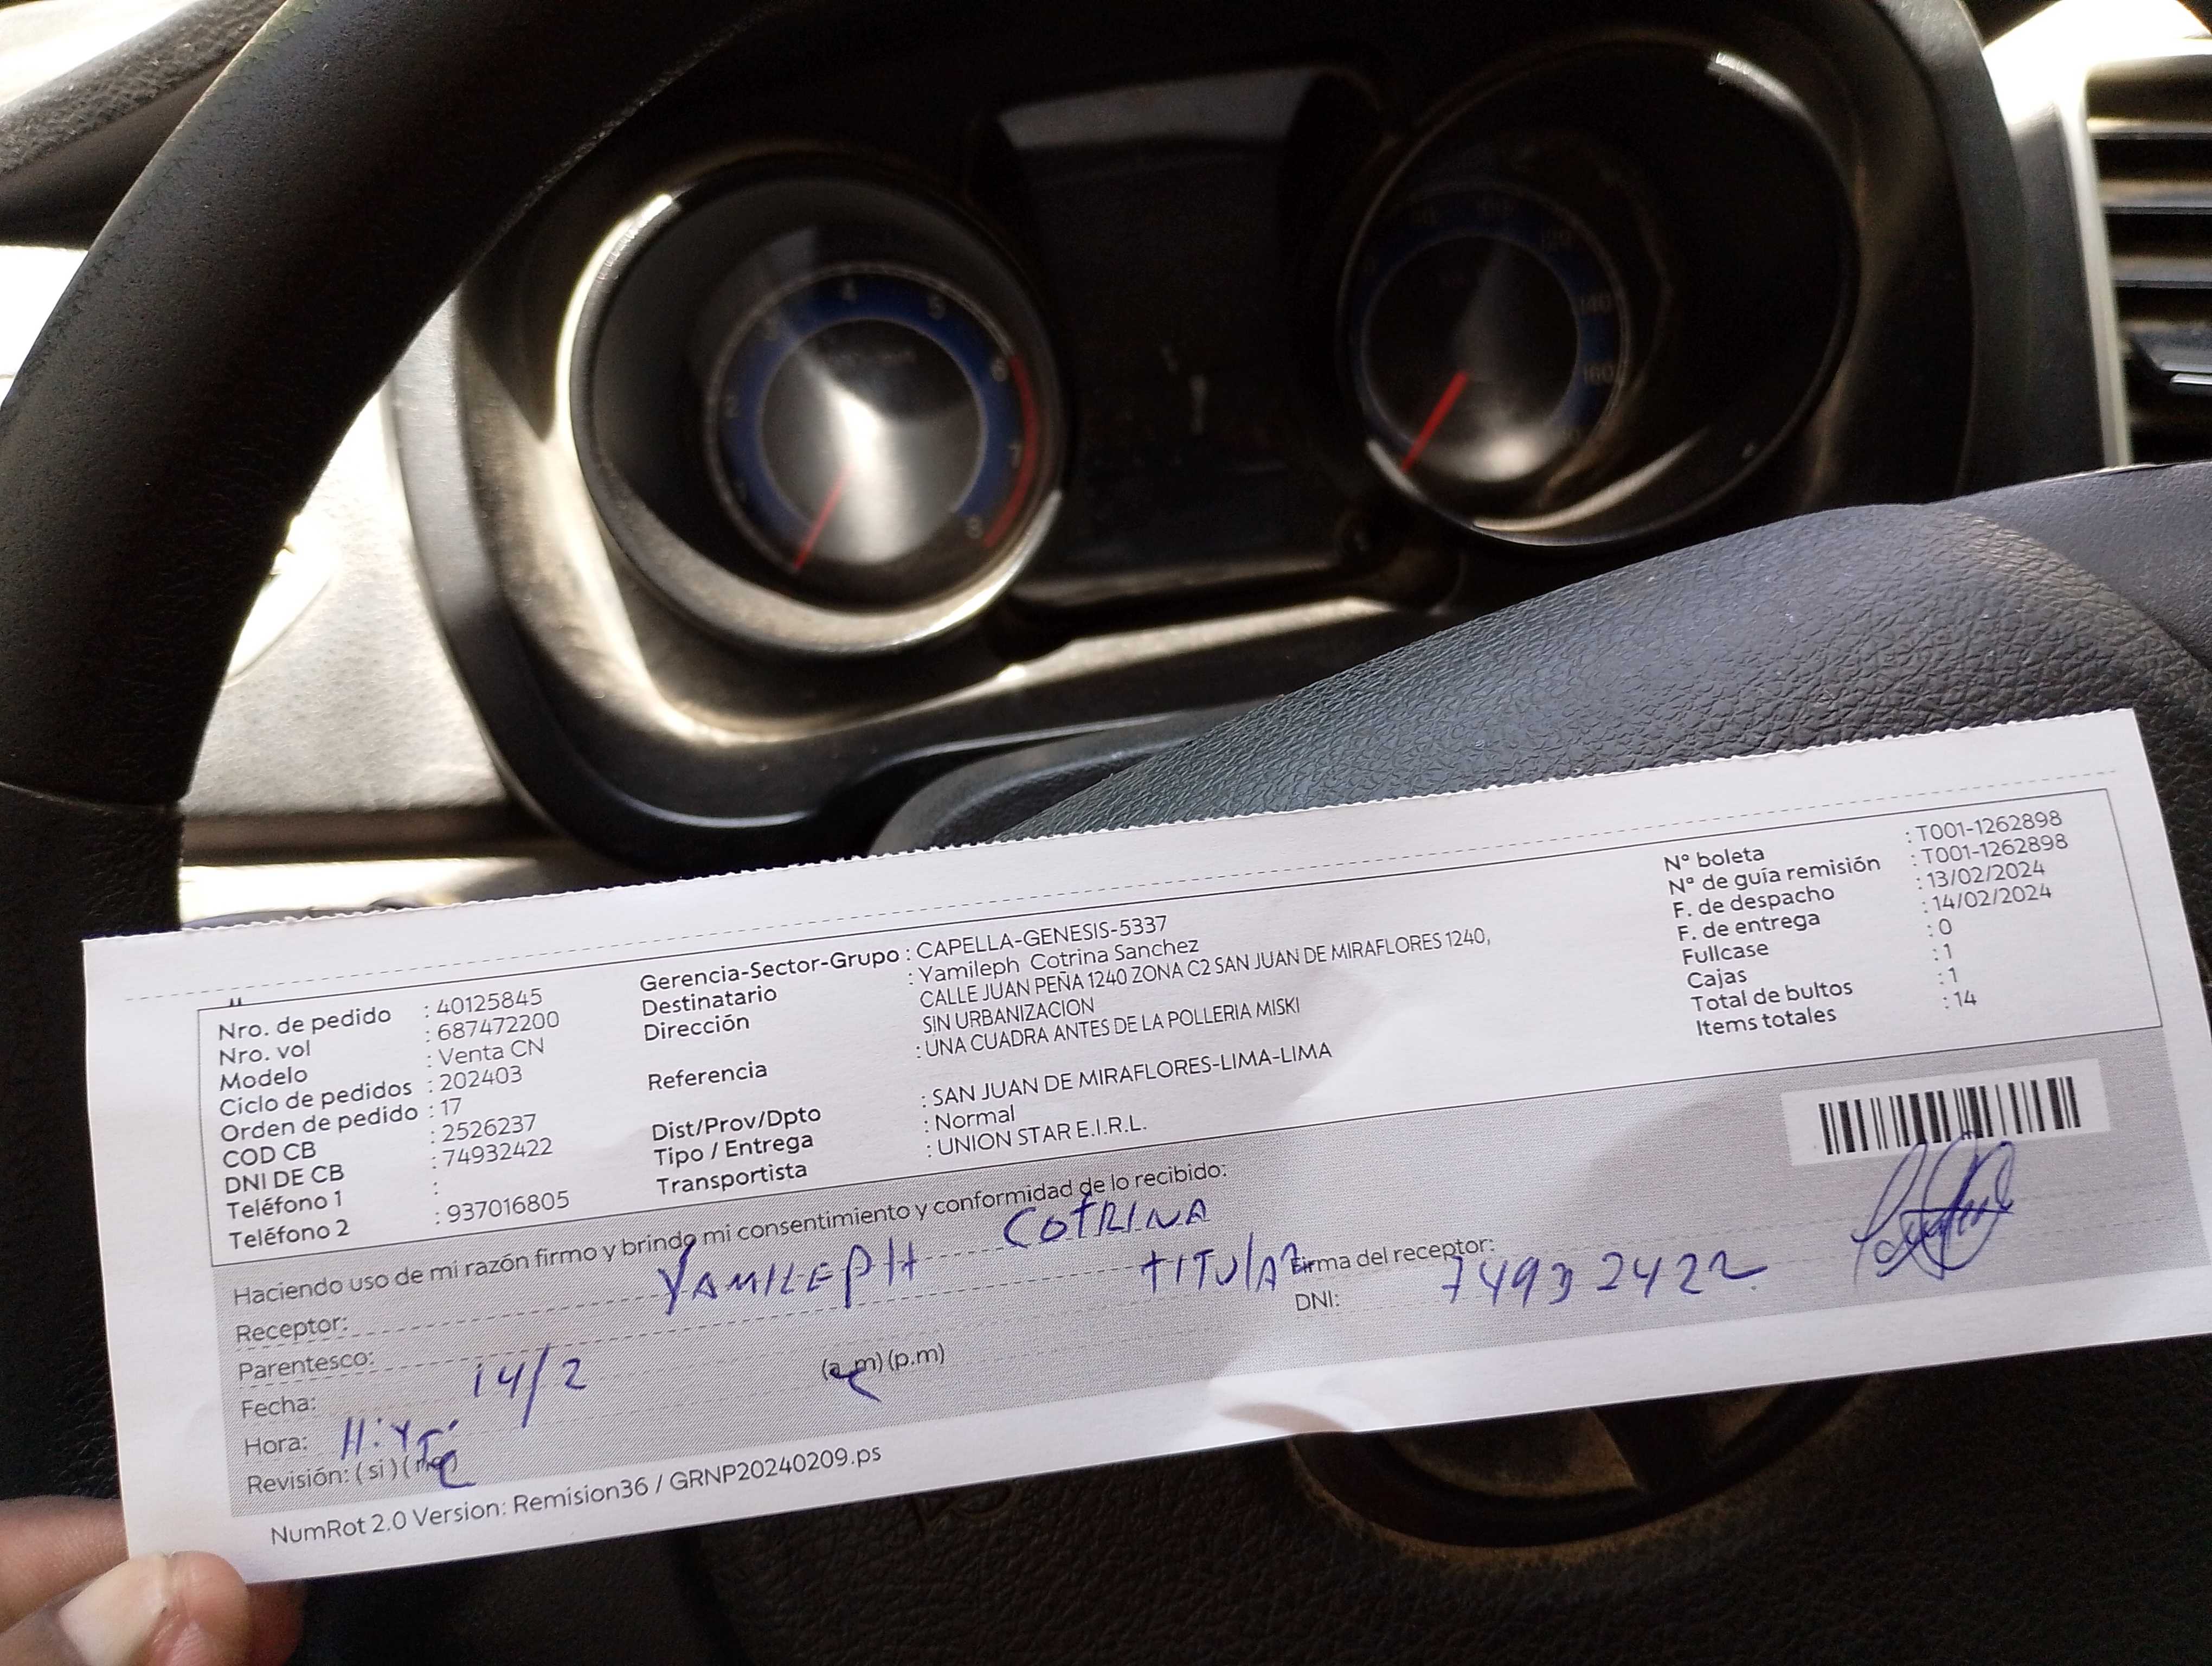 Nro. de pedido : 40125845
Nro. vol : 687472200
Modelo : Venta CN
Ciclo de pedidos : 202403
Orden de pedido : 17
COD CB : 2526237
DNI DE CB : 74932422
Teléfono 1 :
Teléfono 2 : 937016805
Gerencia-Sector-Grupo : CAPELLA-GENESIS-5337
Destinatario : Yamileph Cotrina Sanchez
Dirección CALLE JUAN PEÑA 1240 ZONA C2 SAN JUAN DE MIRAFLORES 1240,
SIN URBANIZACION
Referencia : UNA CUADRA ANTES DE LA POLLERIA MISKI
Dist/Prov/Dpto : SAN JUAN DE MIRAFLORES-LIMA-LIMA
Tipo / Entrega : Normal
Transportista : UNION STAR E.I.R.L.
N° boleta : T001-1262898
N° de guía remisión : T001-1262898
F. de despacho : 13/02/2024
F. de entrega : 14/02/2024
Fullcase : 0
Cajas : 1
Total de bultos : 1
Items totales : 14
Haciendo uso de mi razón firmo y brindo mi consentimiento y conformidad de lo recibido:
Receptor: YAMILEPH COTRINA
Parentesco: TITULAR
Firma del receptor:
DNI: 74932422
Fecha: 14/2
Hora: (a.m) (p.m)
Revisión: ( si ) (
NumRot 2.0 Version: Remision36 / GRNP20240209.ps
4
5
6
7
8
140
160